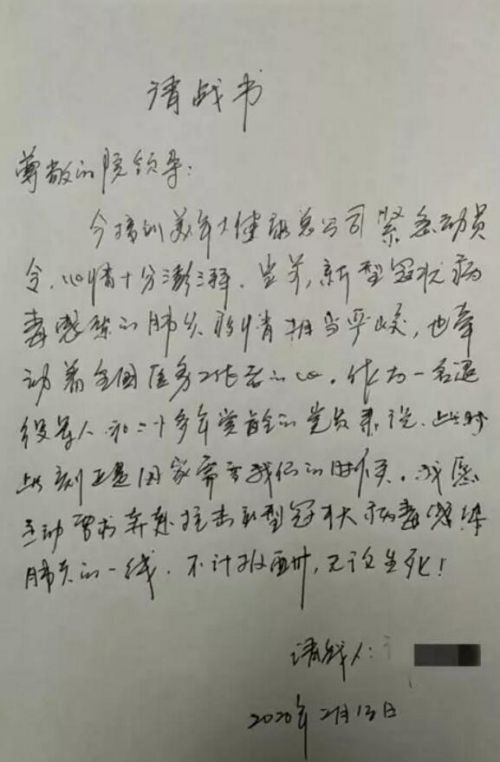 请战书
尊敬的院领导:
今接到美年大健康总公司紧急动员
令,心情十分澎湃。当前,新型冠状病
毒感染的肺炎疫情相当严峻,也牵
动着全国医务工作者的心。作为一名退
役军人和二十多年党龄的党员来说,此时
此刻正是国家需要我们的时候。我愿
主动要求奔赴抗击新型冠状病毒感染
肺炎的一线。不计报酬,无论生死!
请战人:
2020年2月13日